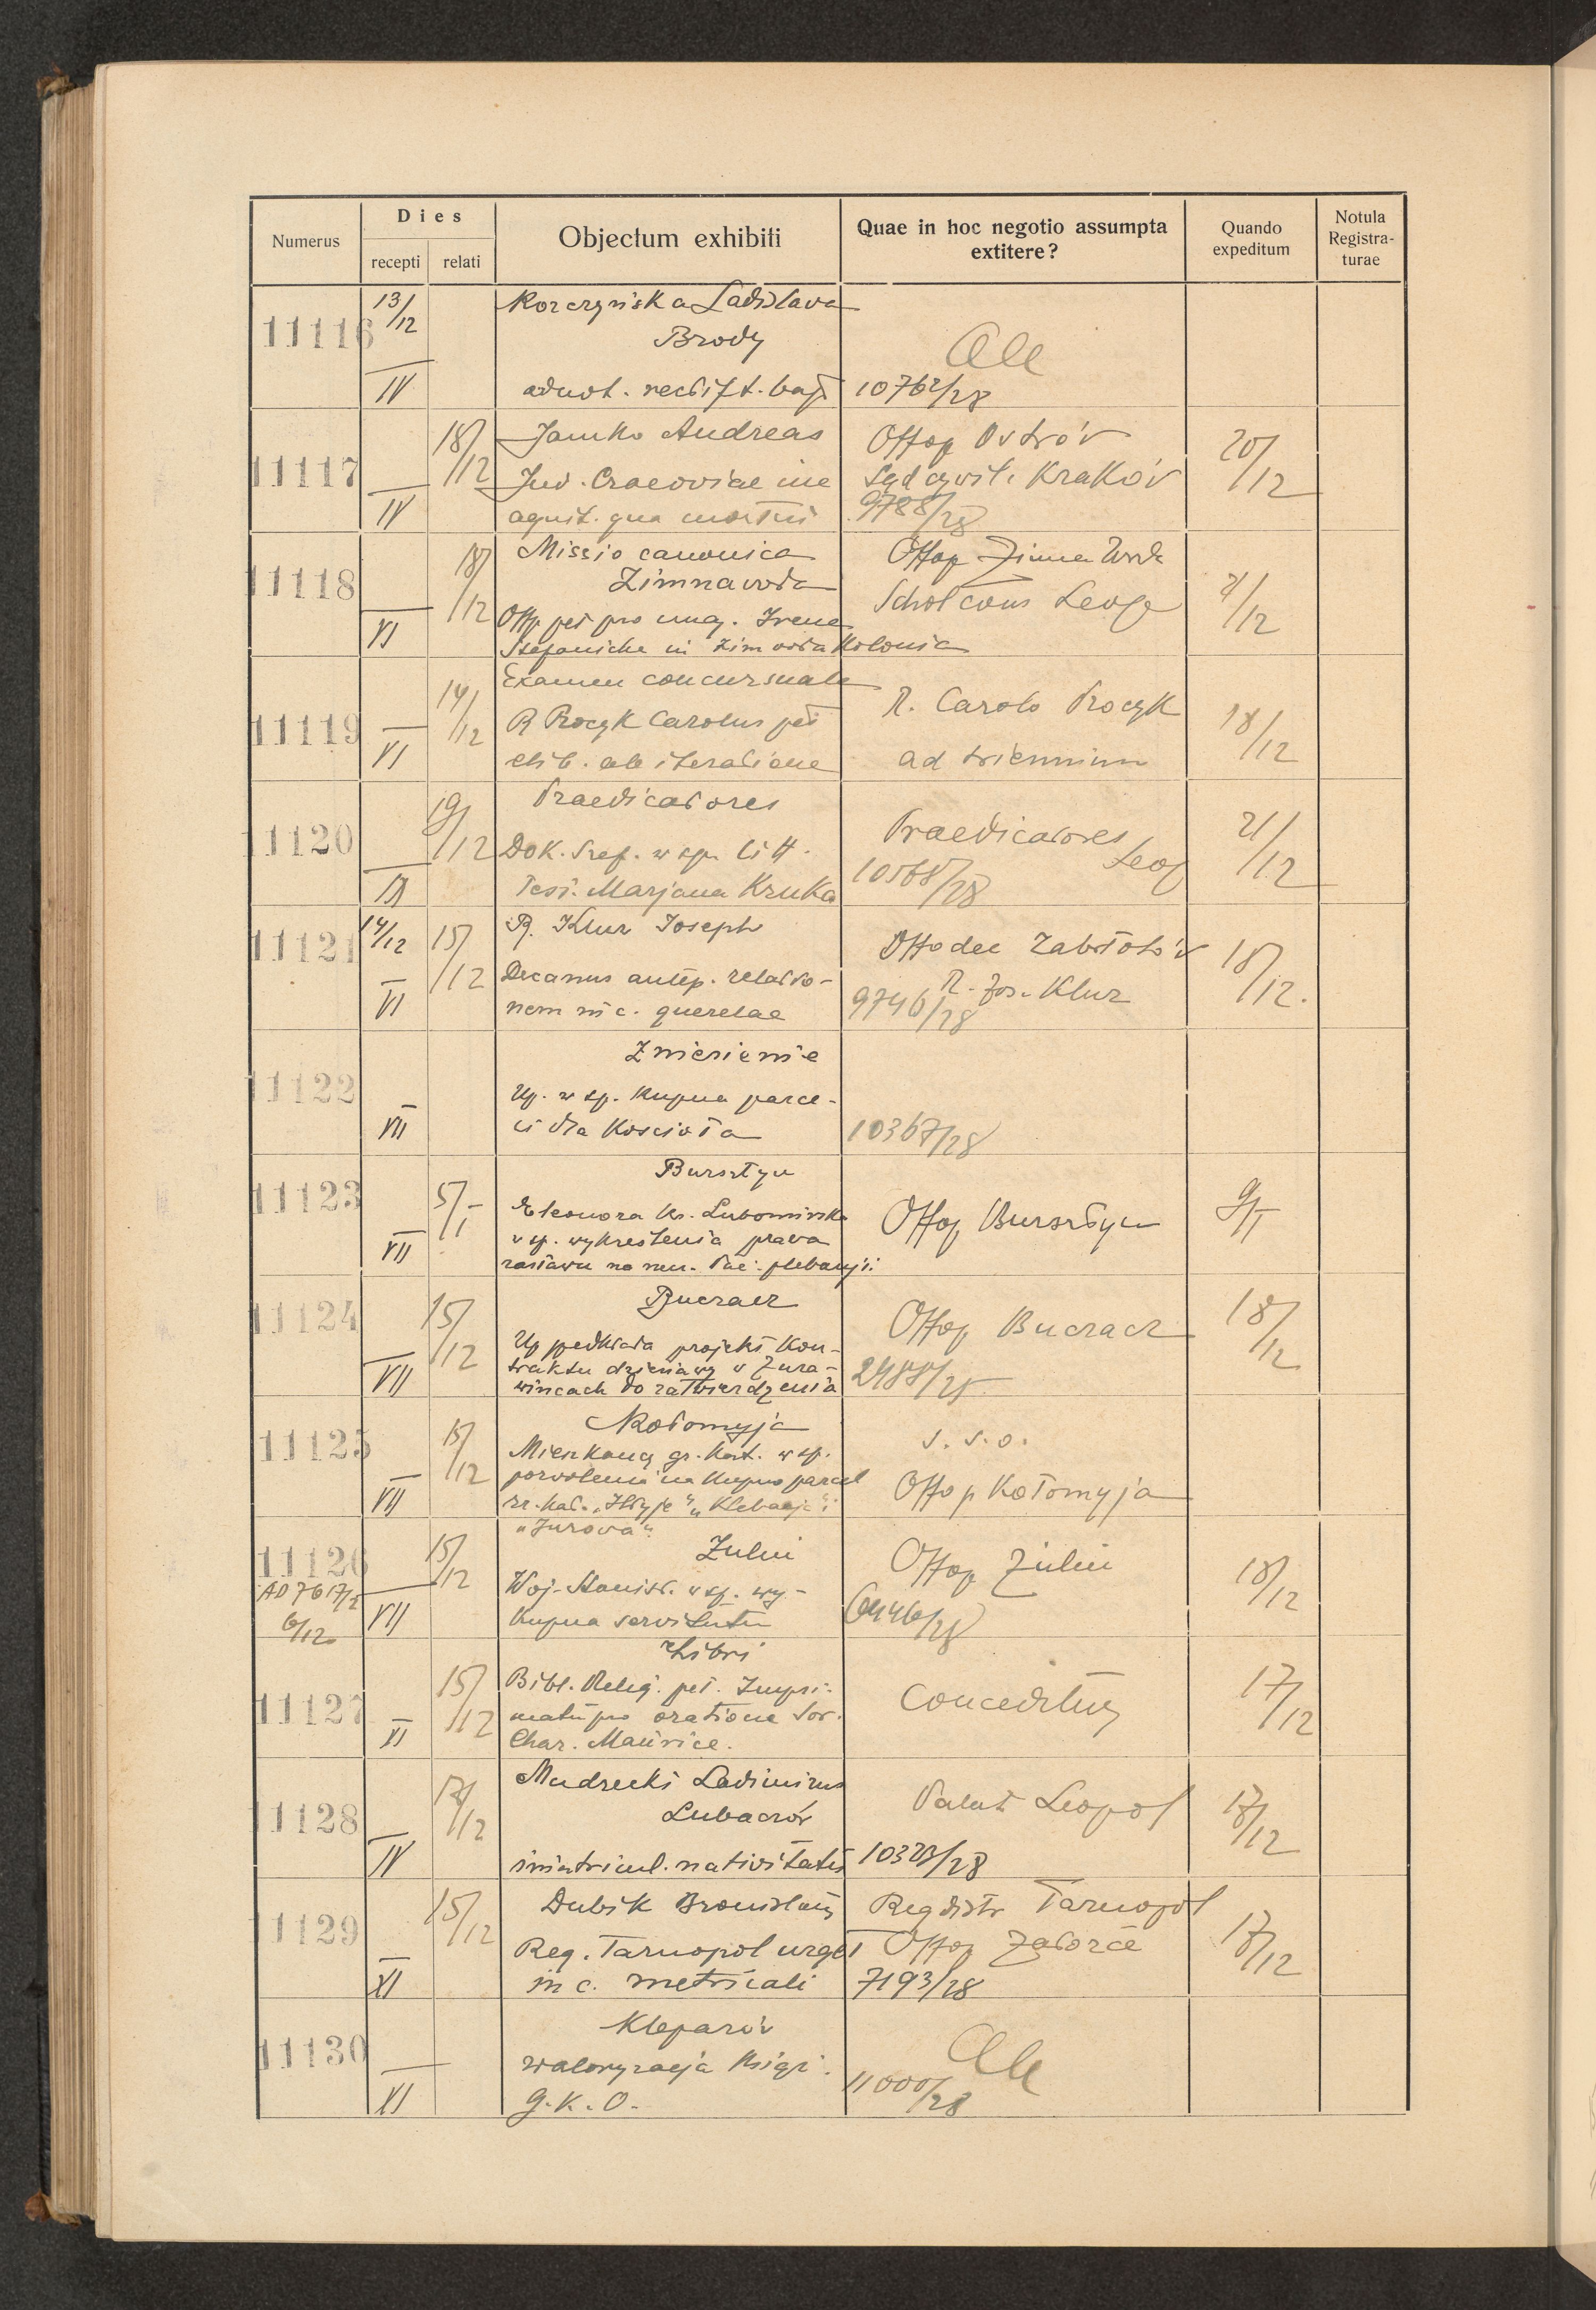 Numerus
Dies
recepti
relati
Objectum exhibiti
Quae in hoc negotio assumpta
extitere?
Quando
expeditum
Notula
Registra-
turae
11116
13/12
IV
Korczyńska Ladislava
Brody
adnot. rectift. bapt
10762/28
11117
18/12
IV
Jamko Andreas
Jud. Cracoviae
agnit. qua mortui
Offop Ostrów
Sąd cywil. Kraków
9788/28
20/12
11118
18/12
VI
Missio canonica
Zimnawoda
Offp. pet pro mag. Irena
in Zimnowoda Kolonia
Offop Zimna Woda
Schol cons Leop
21/12
11119
14/12
VI
Examen concursuale
R Procyk Carolus pet
elib. ab iteratione
R. Carolo Procyk
ad triennium
18/12
11120
19/12
IX
Praedicatores
Dok. Szef. w sp. litt.
test. Marjana Kruka
Praedicatores
Leop
10568/28
21/12
11121
14/12
15/12
VI
R. Klur Joseph
Decanus antep. relatio-
nem in c. querelae
Offodec Zabłotów
R. Jos. Klur
9746/28
18/12.
11122
VII
Zniesienie
Up. w sp. kupna parce-
li dla Kościoła
10367/28
11123
5/I
VII
Bursztyn
Eleonora ks. Lubomirska
w sp. wykreślenia prawa
zastawu na rzecz plebanji
Offop Bursztyn
9/I
11124
15/12
VII
Buczacz
Up przedkłada projekt kon-
traktu dzierżawy w Żura-
wincach do zatwierdzenia
Offop Buczacz
2488/25
18/12
11125
15/12
VII
Kołomyja
Mieszkańcy gr. kat. w sp.
pozwolenia na kupno parcel
rz. kat. „ „Klebanja" i
„Jurowa"
s. s. o.
Offop Kołomyja
11126
AD 7617/
6/12
15/12
VII
Żulin
Woj. Stanisł. w sp. wy-
kupna servitutu
Offop Żulin
6446/28
18/12
11127
15/12
XI
Libri
Bibl. Relig. pet. Impri-
matur pro oratione Sor.
Char. Maurice.
Conceditur
17/12
11128
17/12
IV
Mudrecki Ladimirus
Lubaczów
immatricul. nativitatis
Palat Leopol
10323/28
17/12
11129
15/12
XI
Dubik Bronislaus
Reg. Tarnopol urget
in c. metricali
Reg distr Tarnopol
Offop Załoźce
7193/28
17/12
11130
XI
Kleparów
waloryzacja Książ.
G. K. O.
11000/28